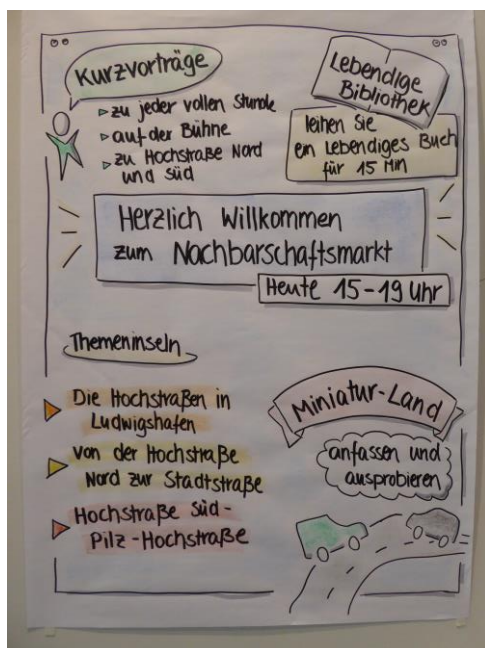 Kurzvorträge
zu jeder vollen Stunde
auf der Bühne
zu Hochstraße Nord
und Süd
Lebendige
Bibliothek
leihen Sie
ein Lebendiges Buch
für 15 Min
Herzlich Willkommen
zum Nachbarschaftsmarkt
Heute 15-19 Uhr
Themeninseln
Die Hochstraßen in
Ludwigshafen
von der Hochstraße
Nord zur Stadtstraße
Hochstraße Süd-
Pilz-Hochstraße
Miniatur-Land
anfassen und
ausprobieren